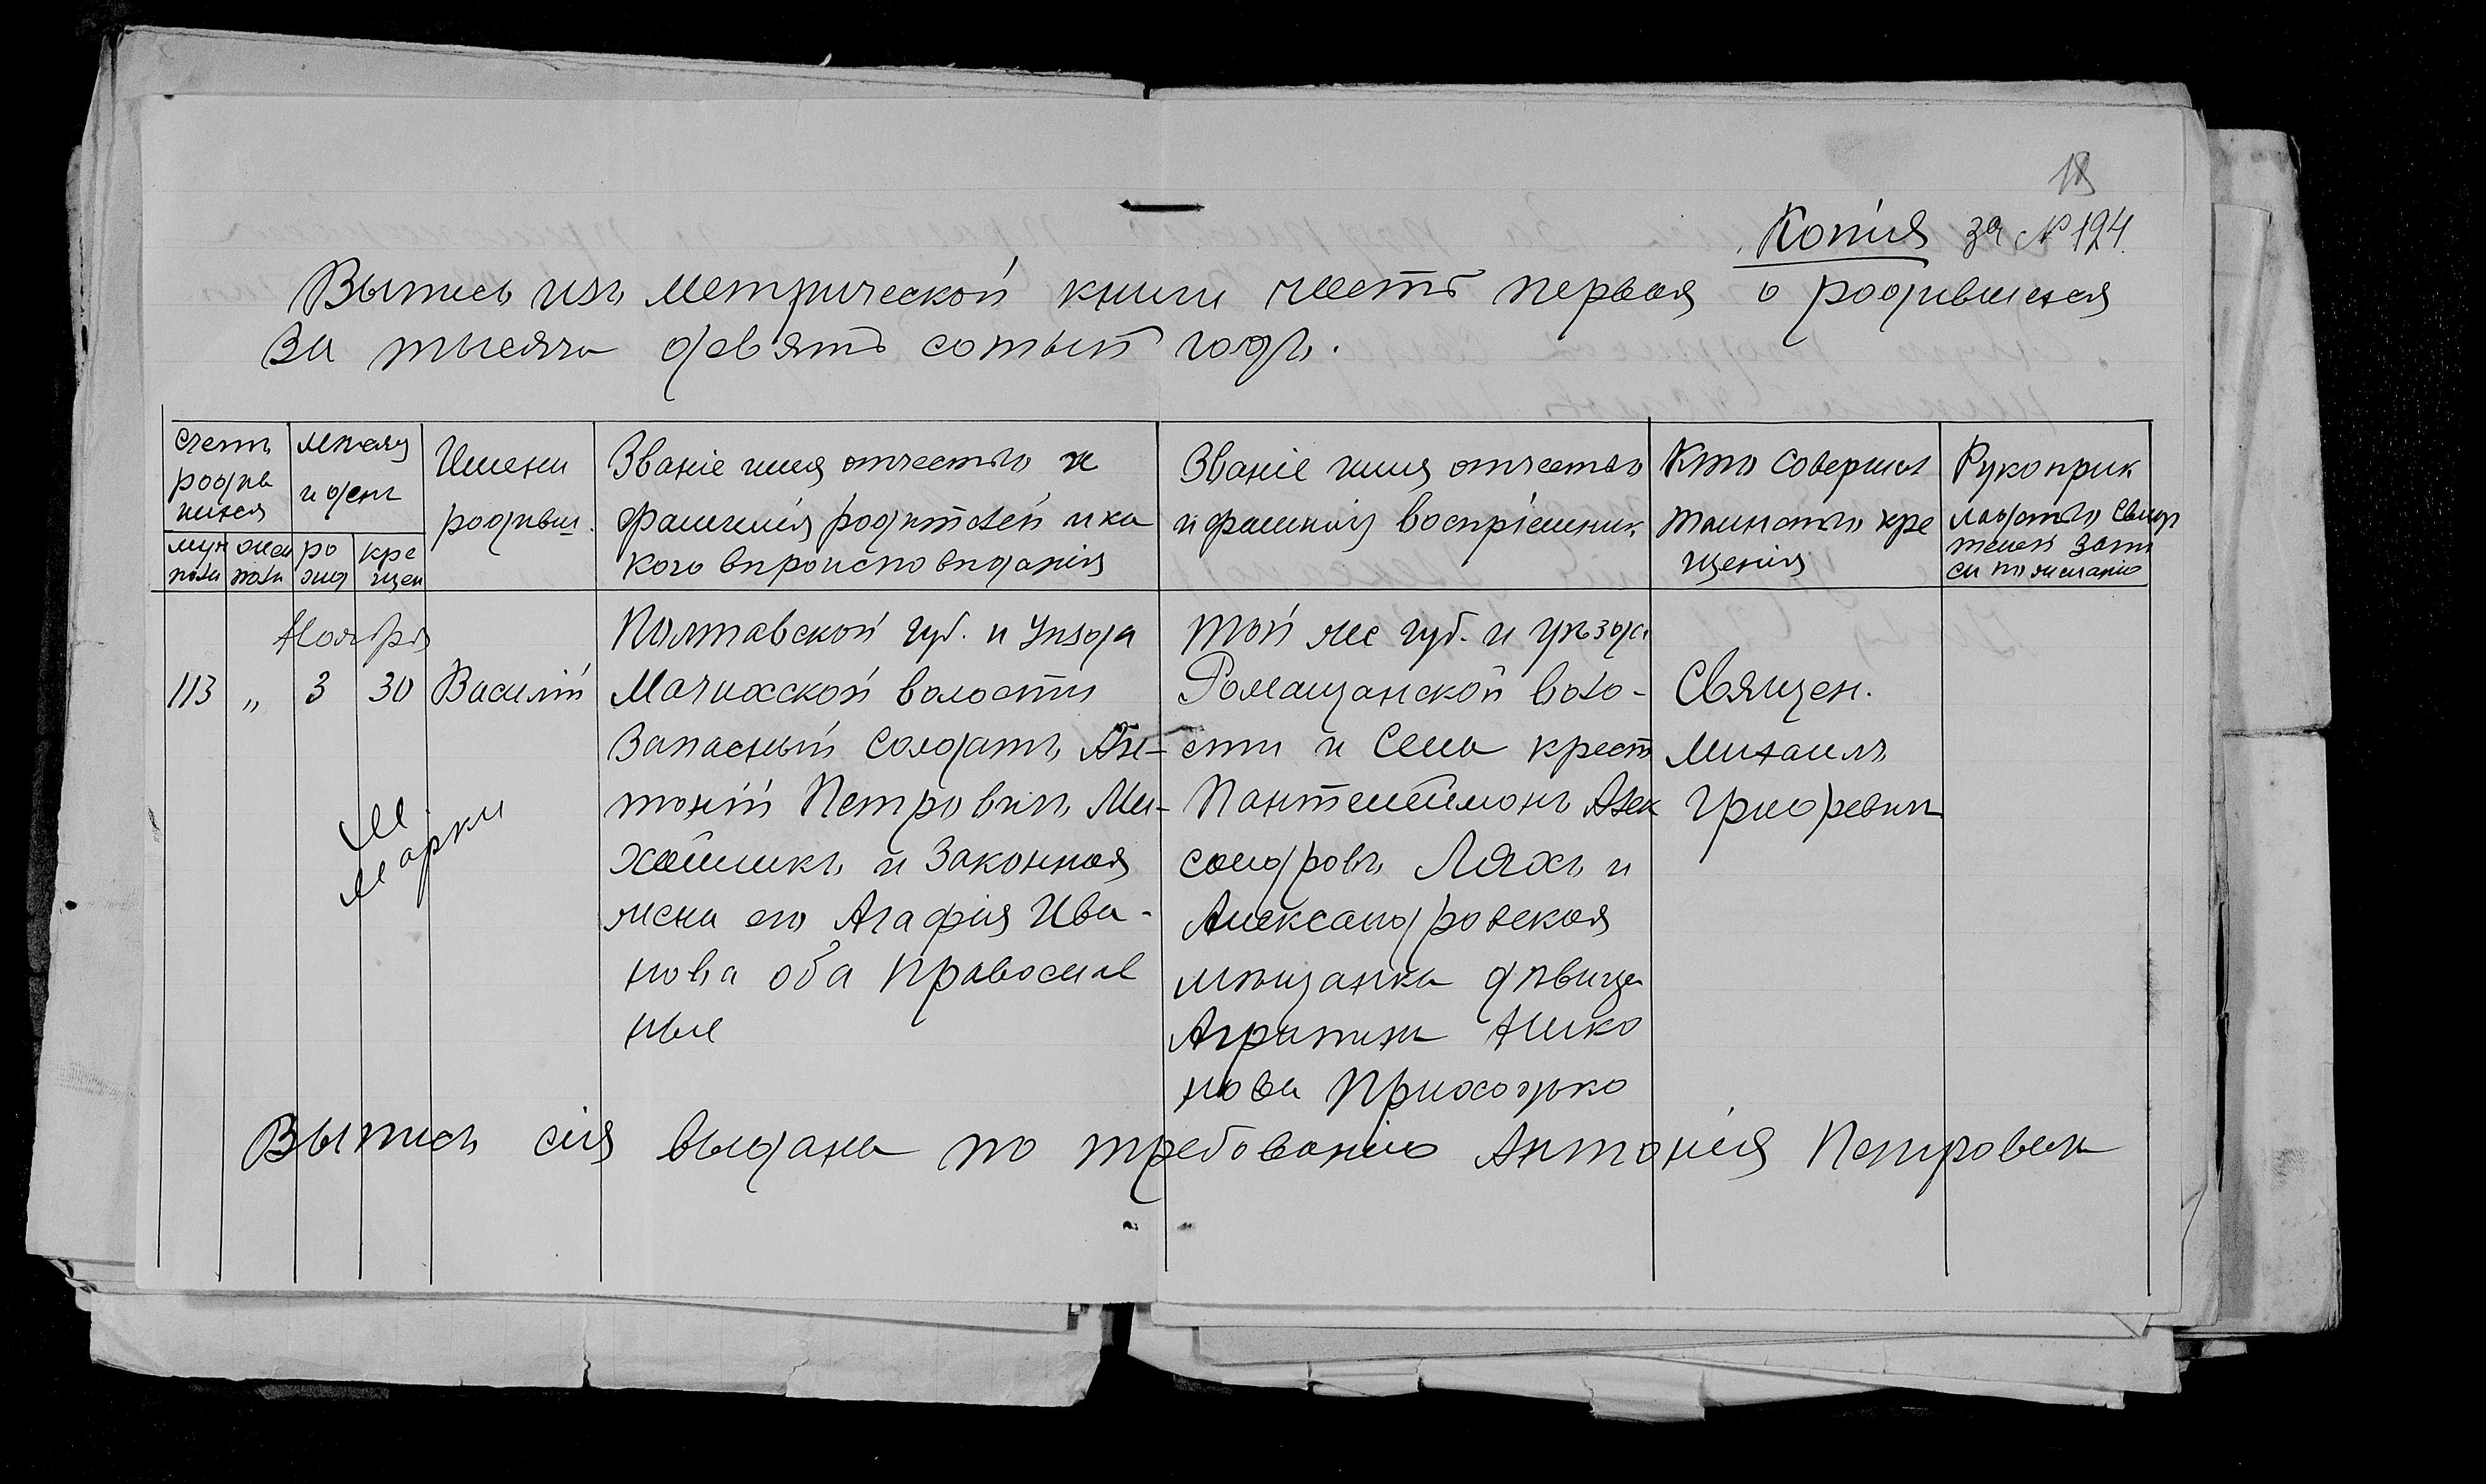 18
Копія за № 194.
Выпись изъ метрической книги часть первая о родившихся
за тысяча девять сотый годъ.
Счетъ
родив
шихся
муж
пола
жен
пола
Месяц
и день
ро
жд
кре
щен
Имена
родивш.
Званіе имя отчество и
фамилія родителей и ка
кого вѣроисповѣданія
Званіе имя отчество
и фамилія воспріемник.
Кто соверши
таинство кре
щенія
Рукоприк
ладство свид
телей запи
си по желанію
Ноября
113 „ 3 30 Василій
Полтавской губ. и уѣзда
Мачихской волости
Запасный солдатъ Ан-
тоній Петровичъ Ми-
хайликъ и законная
жена его Агафія Ива-
нова оба православ
ные
той же губ. и уѣзда
волости и села крест
Пантелеймонъ Алек
сандровъ Ляхъ и
Александровская
мѣщанка дѣвица
Агрипина Нико
нова Приходько
Священ.
Михаилъ
Григоревич
М.
марки
Выпись сія выдана по требованію Антонія Петрович